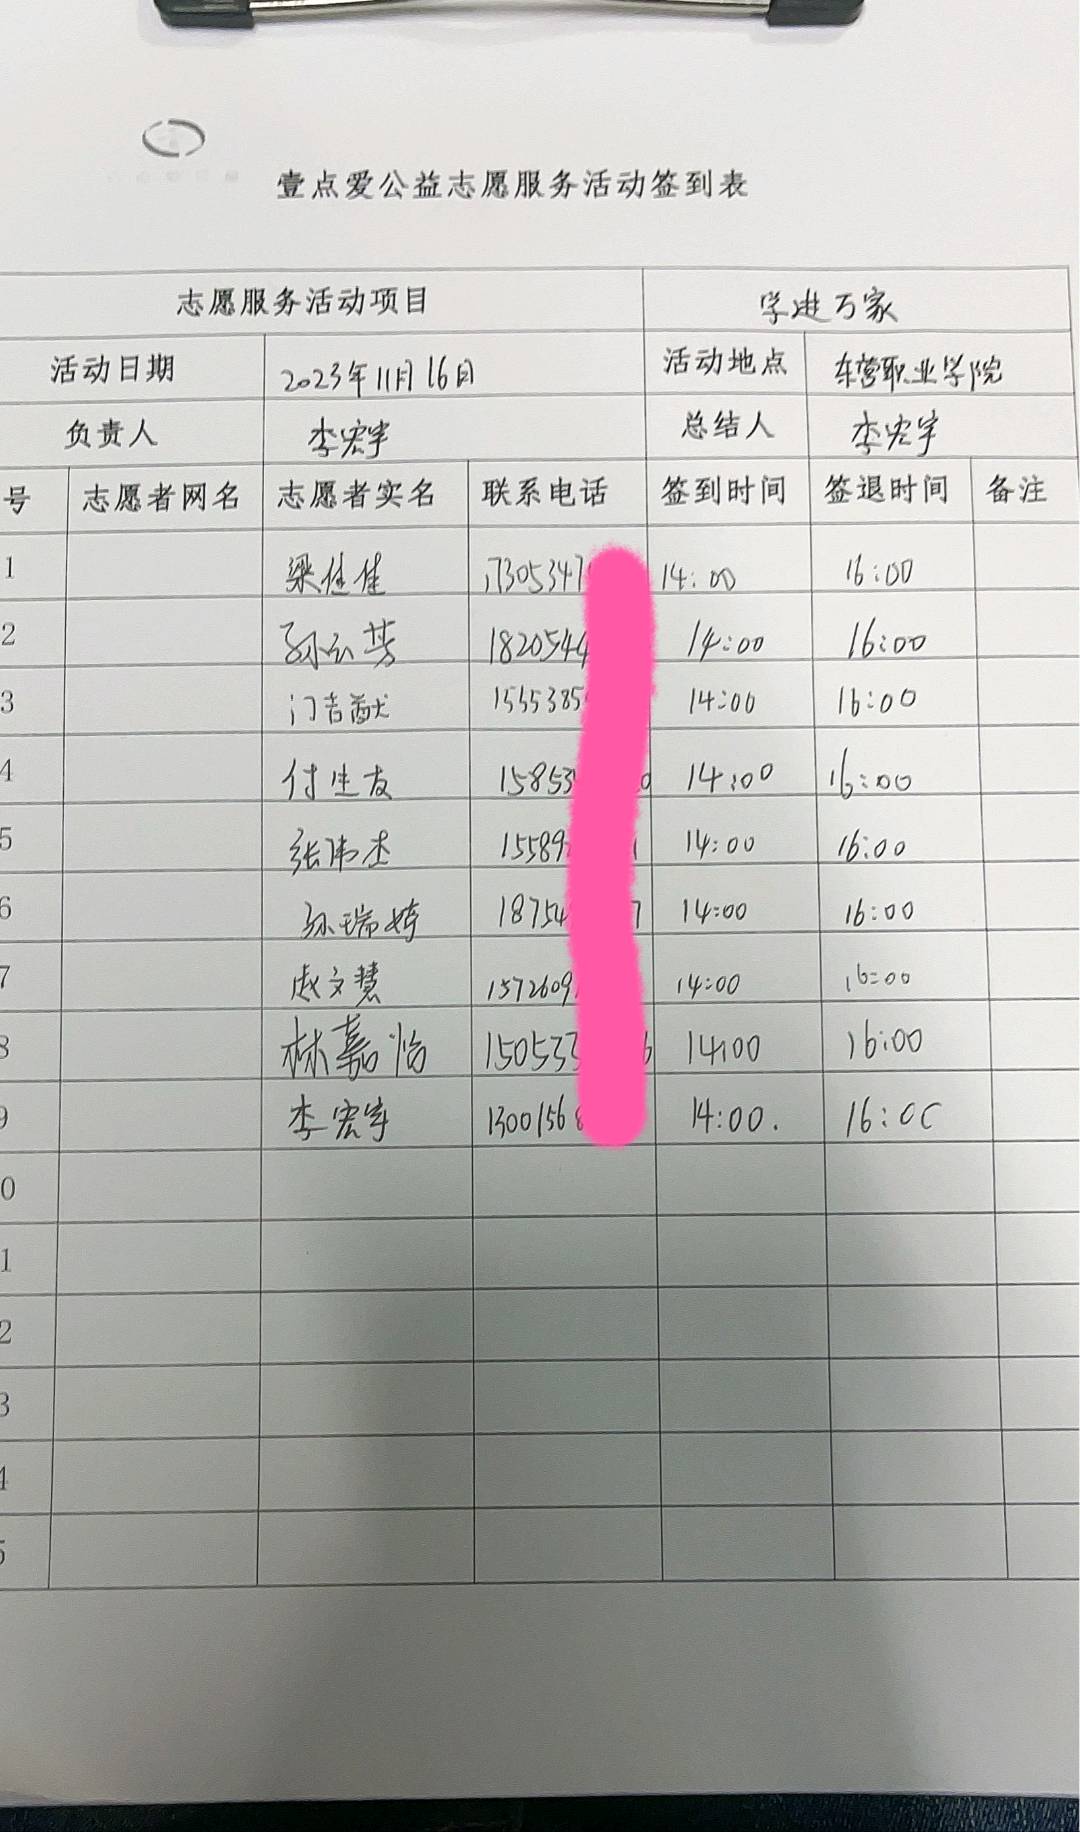 壹点爱公益志愿服务活动签到表
志愿服务活动项目 学进万家
活动日期 2023年11月16日 活动地点 东营职业学院
负责人 李宏宇 总结人 李宏宇
号 志愿者网名 志愿者实名 联系电话 签到时间 签退时间 备注
1 梁佳佳 1730534 14:00 16:00
2 孙云芳 182054 14:00 16:00
3 门吉猷 1555385 14:00 16:00
4 付生友 15853 0 14:00 16:00
5 张伟杰 15589 14:00 16:00
6 孙瑞婷 18754 7 14:00 16:00
7 赵文慧 1572609 14:00 16:00
8 林嘉怡 150533 6 14:00 16:00
9 李宏宇 1300156 14:00. 16:00
0
1
2
3
4
5